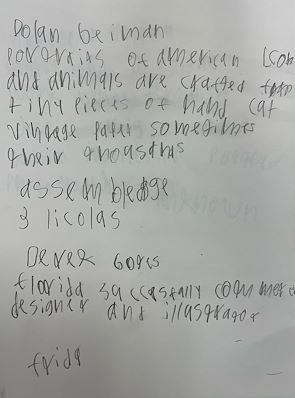 Dolan Geiman
Portraits of American Icon
and animals are crafted from
tiny pieces of hand cat
vintage Paper sometimes
their thousthns
assembledge
3 licolas
Derek Gores
florida saccasfally commer
designer and illastrator
frida